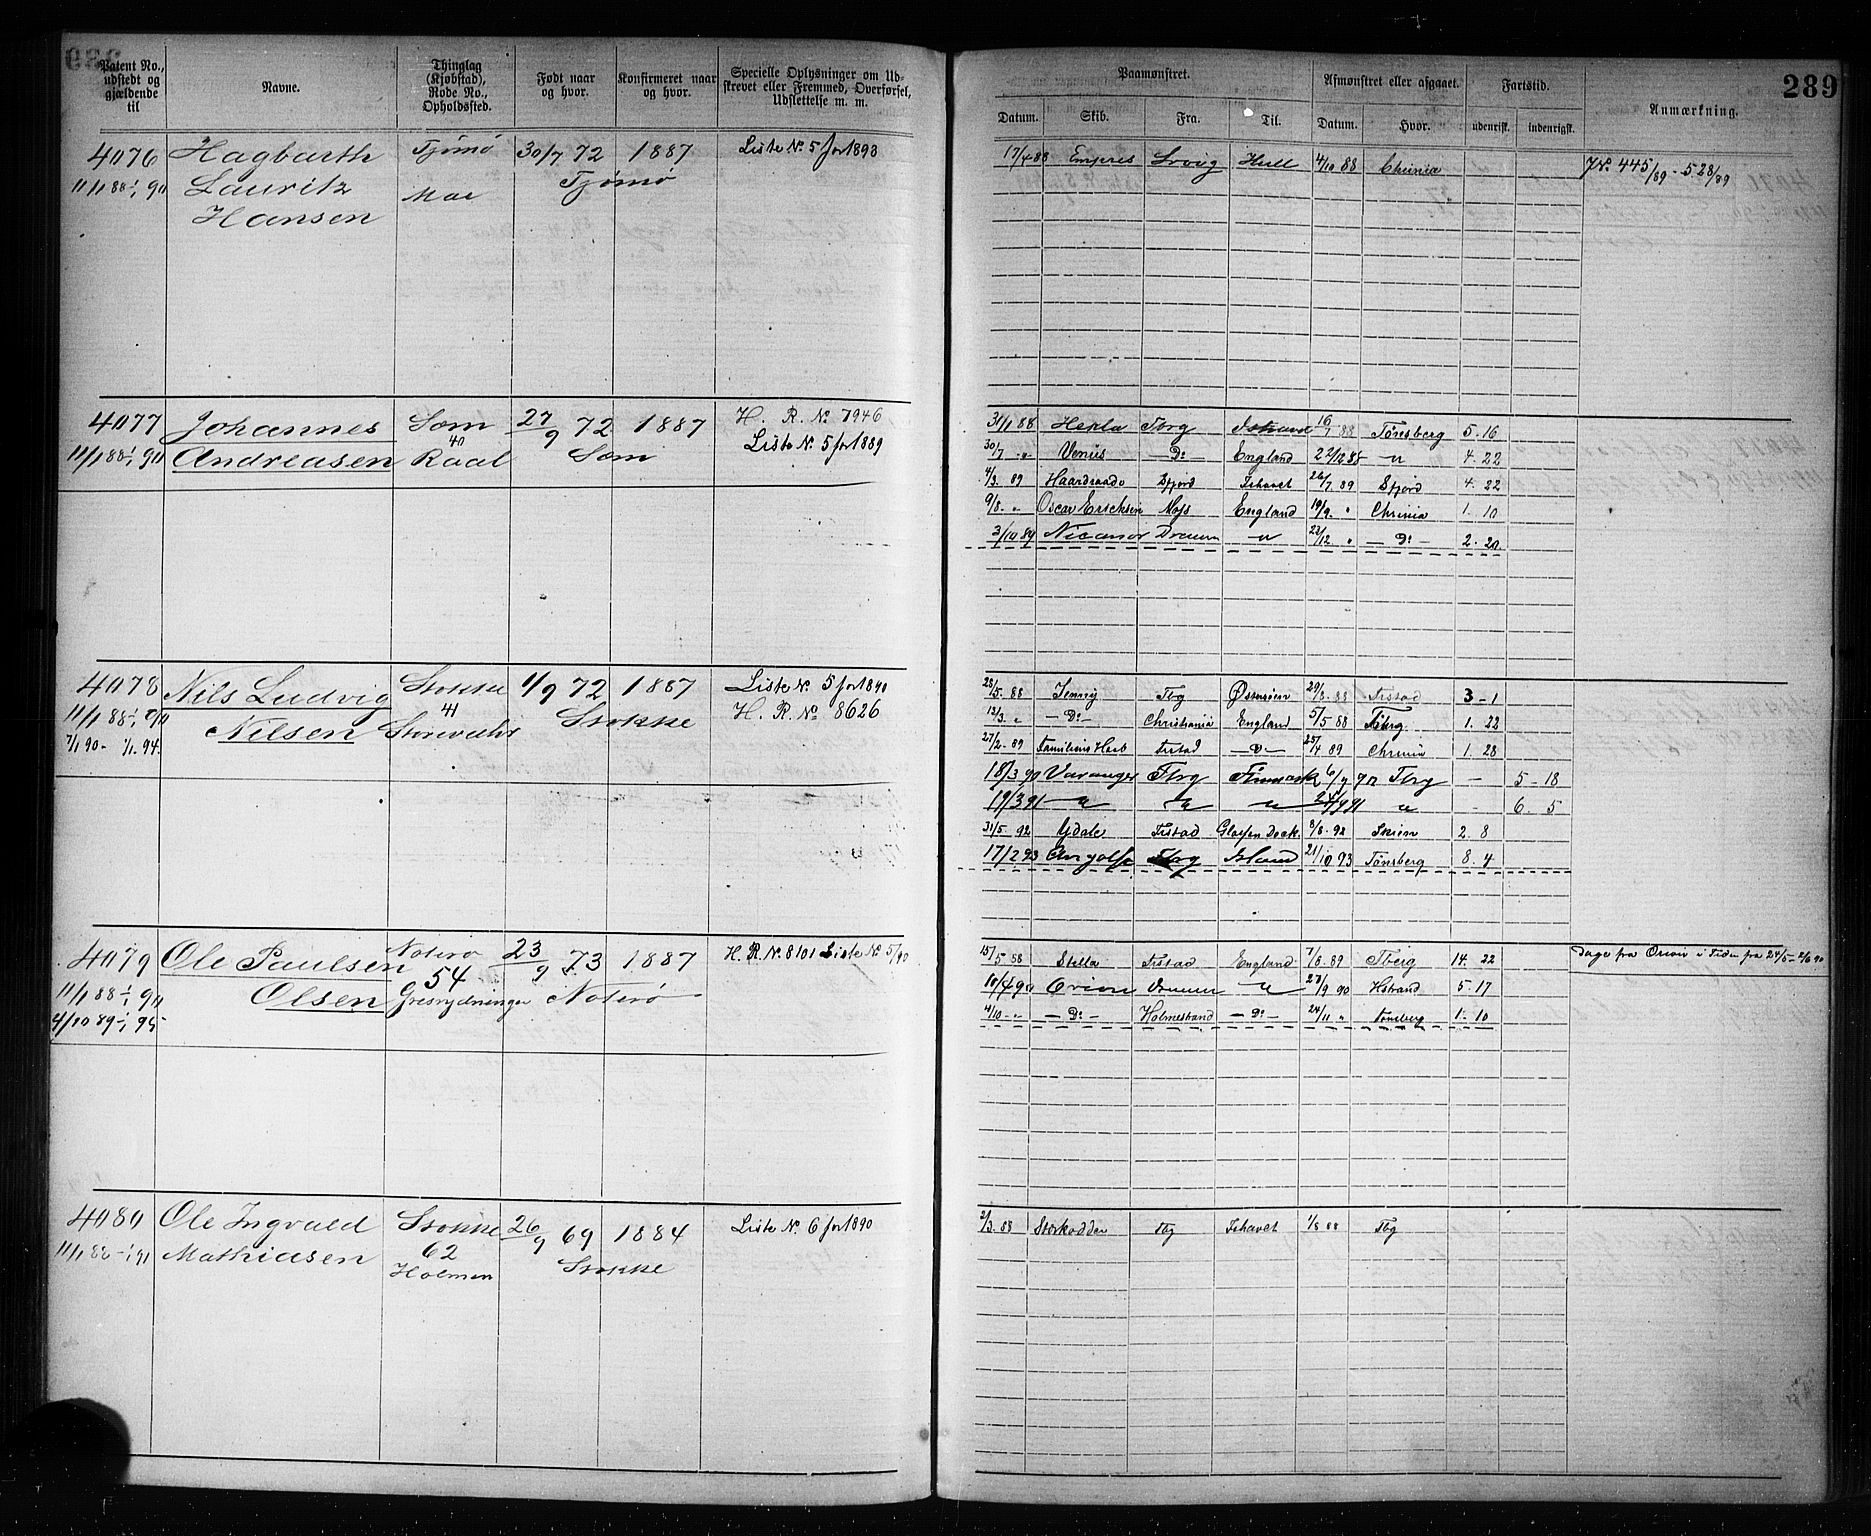 289
Patent No., udstedt og gjældende til
Navne.
Thinglag (Kjøbstad), Rode No., Opholdsted.
Født naar og hvor.
Konfirmeret naar og hvor.
Specielle Oplysninger om Udskrevet eller Fremmed, Overførsel, Udslettelse m. m.
Paamønstret.
Afmønstret eller afgaaet.
Fartstid.
Anmærkning.
Datum. Skib. Fra. Til. Datum. Hvor. udenrigsk. indenrigsk.
4076 Hagbarth Tjømø 30/7 72 1887 Liste No. 5 for 1893
11/1 88 - 1/1 90 Lauritz Tjømø
Hansen
17/4 88 Hull 4/10 88 Chrinia No. 445/89 - 528/89
4077 Johannes Søm 27/9 72 1887 H. R. No 7946
40 Liste No. 5 for 1889
11/1 88 - 1/1 90 Andreasen Raal Søm
31/1 88 Hekla Tbrg 16/7 88 Tønsberg 5-16
30/7 - " Venus - Do - England 22/12 88 - " 4. 22
4/3. 89 Sfjord Ishavet 26/7. 89 Sfjord 4. 22
9/8. " Oscar Ericksen Moss England 19/9. " Chrinia 1. 10
3/10 89 Nicanor Dramm - " 23/12 " - Do - 2. 20
4078 Nils Ludvig Stokke 1/9 72 1887 Liste No. 5 for 1890
11/1 88 41 Stokke H. R. No 8626
Nilsen
7/1 90 - 1/1. 94.
28/5. 88 Jenny Tbg Østersøen 29/8. 88 Frstad 3-1
13/3. " - Do - Christiania England 5/5 88 Tbrg. 1. 22
27/2 - 89 Familiens Haab Frstad - Do - 25/4 89 Chrinia 1. 28
18/3 90 Varanger Tbrg Finmark 6/9 90 Tbrg - 5-18
19/3 91 - " " " " - 6. 5
31/5. 92 Ydale Frstad Glasson Dock 8/8. 92 Skien 2. 8
17/2 93 Tbrg Island 21/10 93 Tønsberg 8. 4
4079 Ole Paulsen Noterø 23/9 73 1887 H. R. No. 8101 Liste No 5/90
54
11/1 88 - 1/1 90 Olsen Noterø
4/10 89 - 1/1 95
15/5 88 Stella Frstad England 7/8. 89 Tberg 14. 22 Dage fra Orion i Tiden fra 24/5 - 2/6 90
10/4 90 Orion Drammen " 27/9 90 Hstrand 5-17
4/10 - " - Do - Holmestrand - Do - 24/11 " Tønsberg 1. - 10
4080 Ole Ingvald Stokke 26/9 69 1884 Liste No. 6 for 1890
11/1 88 - 1/1 91 Mathiasen 62 Stokke
Holmen
2/3. 88 Stærkodder Tbg Ishavet 1/8 88 Tbg